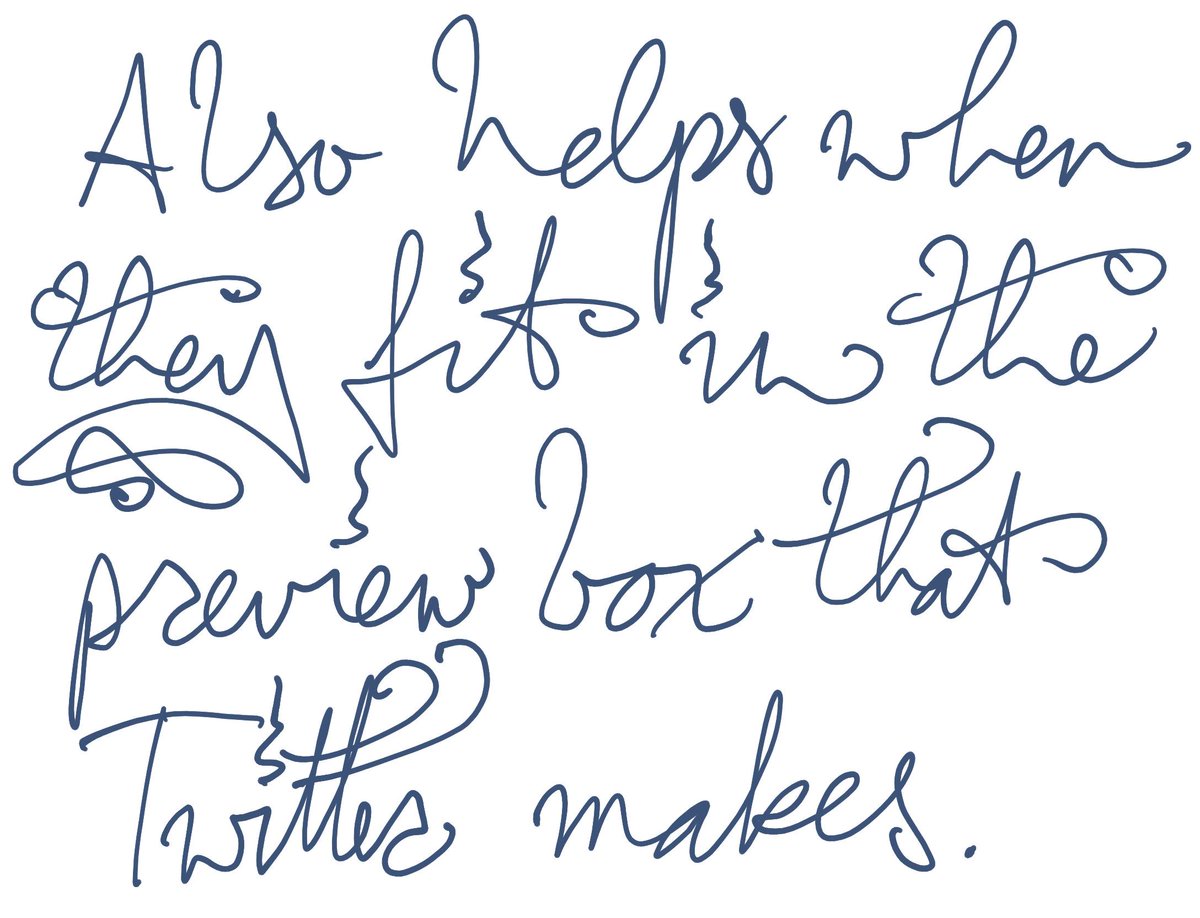 Also helps when
they fit in the
preview box that
Twitter makes.